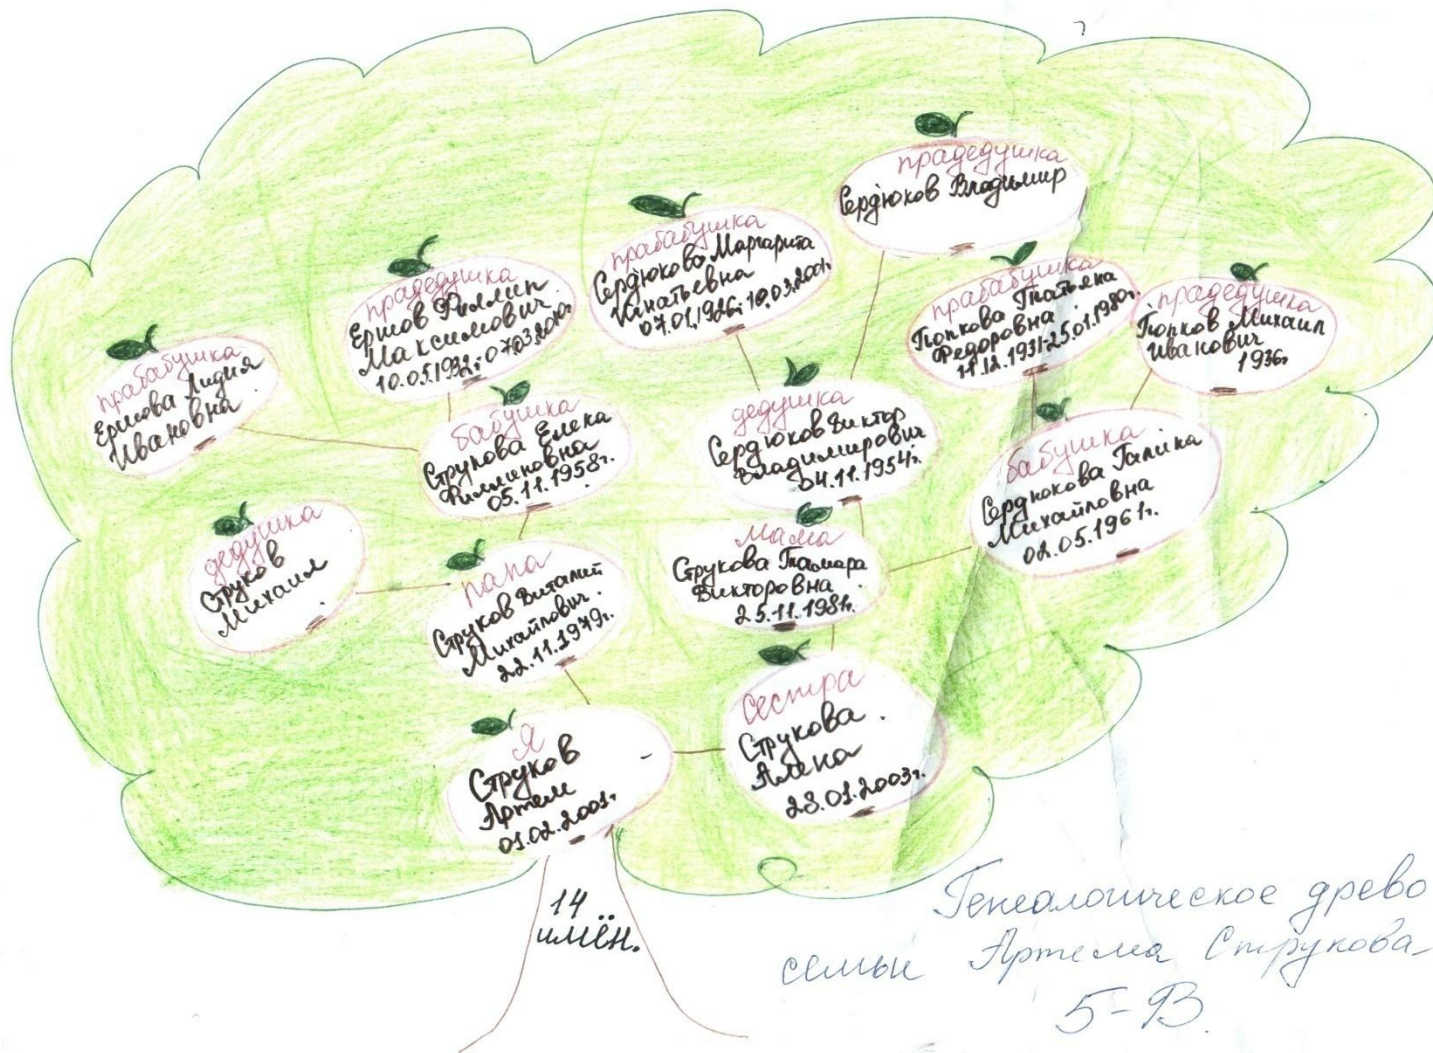 прадедушка
Сердюков Владимир
прабабушка
Сердюкова Маргарита
Игнатьевна
07.01.1926г-10.03.2001г.
прадедушка
Ершов Филлип
Максимович.
10.05.1932г-07.03.2010г.
прабабушка
Ершова Лидия
Ивановна.
прабабушка
Попкова Татьяна
Федоровна.
11.12.1931-25.01.1980г.
прадедушка
Попков Михаил
Иванович
1936г
бабушка
Струкова Елена
Филлиповна
05.11.1958г.
дедушка
Сердюков Виктор
Владимирович
04.11.1954г.
бабушка
Сердюкова Галина
Михайловна
02.05.1961г.
дедушка
Струков
Михаил
папа
Струков Виталий
Михайлович.
22.11.1979г.
мама
Струкова Тамара
Викторовна
25.11.1981г.
Я
Струков
Артем
01.02.2001г.
сестра
Струкова.
Алена
28.01.2003г.
14
имён.
Генеалогическое древо
семьи Артема Струкова
5-В.